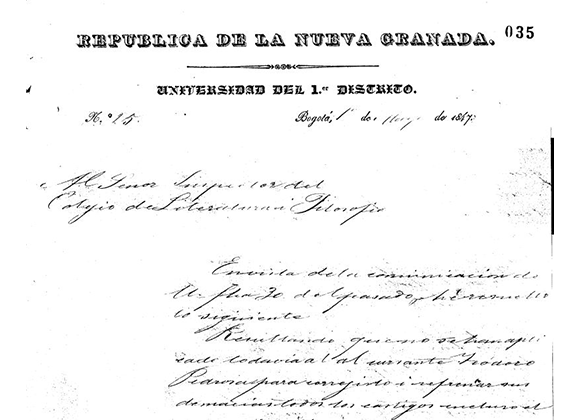 REPUBLICA DE LA NUEVA GRANADA. 035
UNIVERSIDAD DEL 1.er DISTRITO.
N.° 25. Bogotá, 1° de Mayo de 1847.
Al Señor Inspector del
Colegio de Literatura i Filosofía
En vista de la comunicacion de
U. fha 30 del pasado, he resuelto
lo siguiente
Resultando que no se han apli
cado todavia al cursante Teodoro
Pedroza para correjirlo i refrenar sus
demacias todos los castigos incluso el